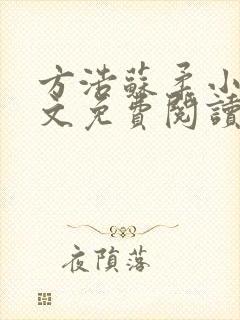 方浩蘇柔小
文免費閱讀
夜隕落